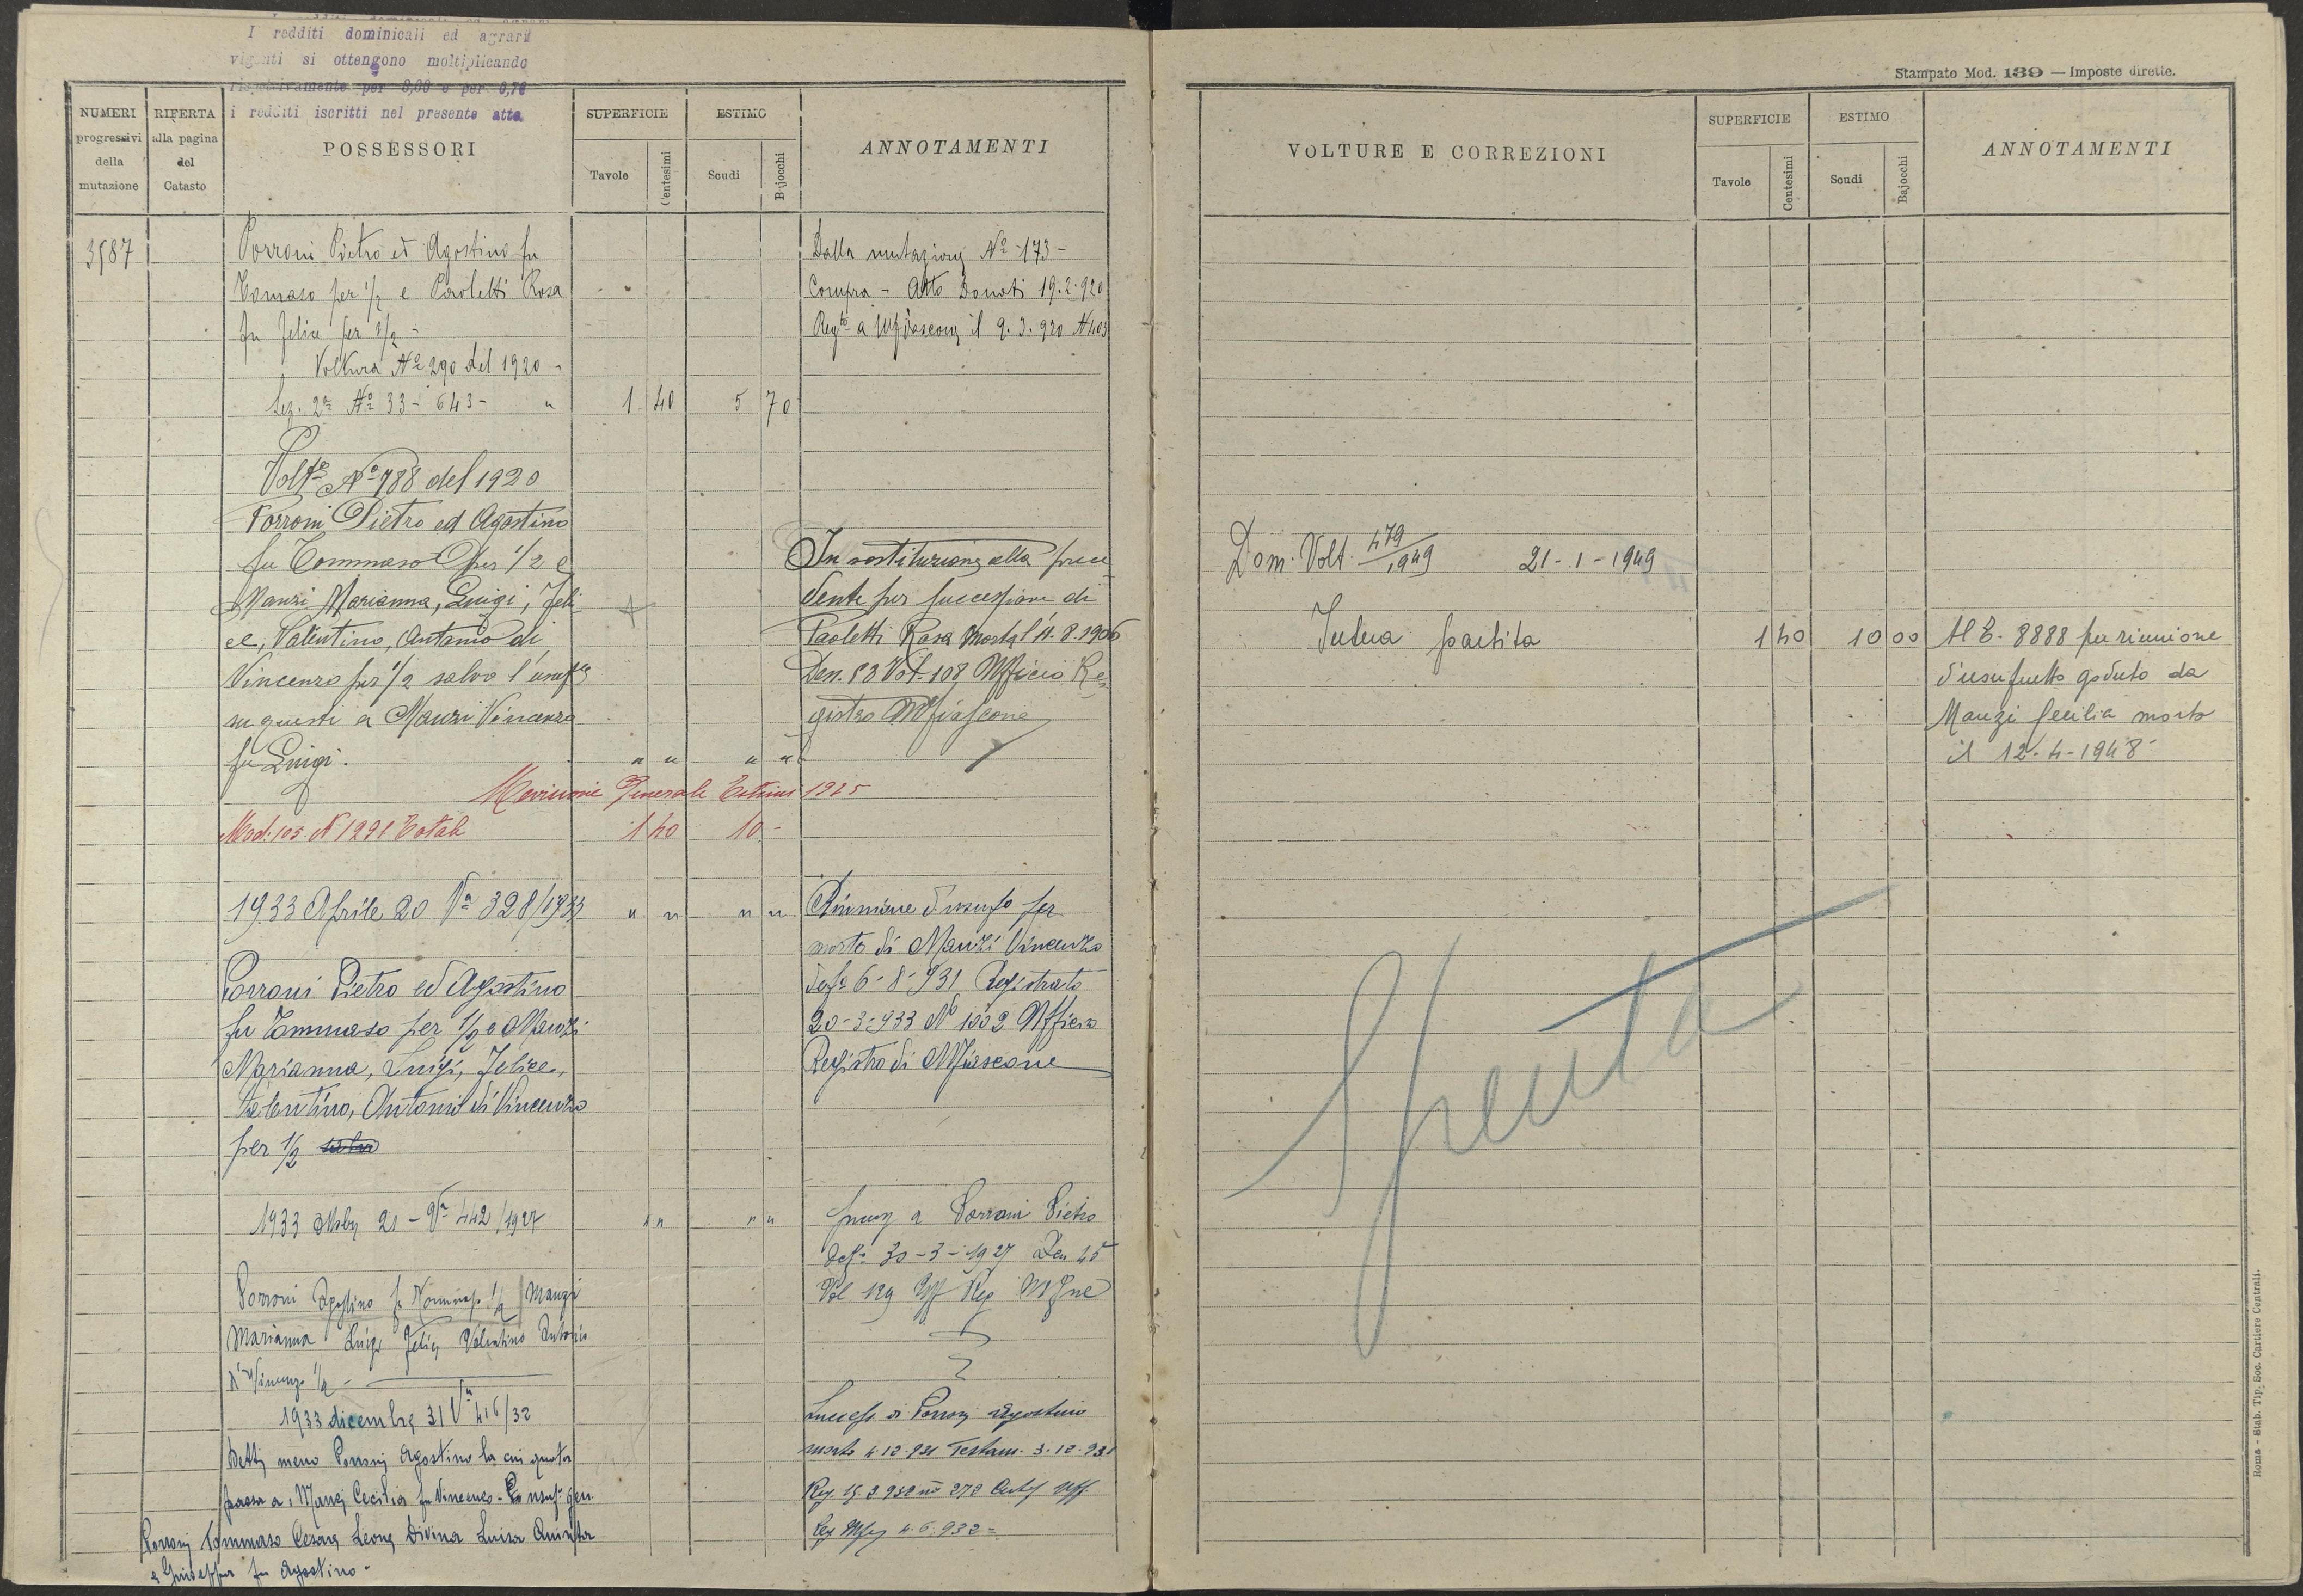 I redditi dominicali ed agrari
vigenti si ottengono moltiplicando
rispettivamente per
i redditi iscritti nel presente atto.
NUMERI
progressivi
della
mutazione
RIFERTA
alla pagina
del
Catasto
POSSESSORI
SUPERFICIE
Tavole
Centesimi
ESTIMO
Scudi
Bajocchi
ANNOTAMENTI
3587
Porroni Pietro ed Agostino fu
Tomaso per 1/2 e Paoletti Rosa
fu Felice per 1/2 -
Voltura No 290 del 1920 -
Sez. 2a No 33 - 643 - " 1 40 5 70
Dalla mutazione No 173 -
Compra - Atto Donati 19.2.920
Regto a Mfiascone il 9.3.920 N403
Volta No 788 del 1920
Porroni Pietro ed Agostino
fu Tommaso per 1/2 e
Manzi Marianna, Luigi, Feli
ce, Valentino, Antonio di
Vincenzo per 1/2 salvo l'usufo
su questi a Manzi Vincenzo
fu Luigi. " " " "
In sostituzione alla prece
dente per successione di
Paoletti Rosa morta l'11.8.1906
Den. 53 Vol. 108 Ufficio Re
gistro Mfiascone
Revisione Generale Estimi 1925
Mod. 103 N 1291 Totale 1 40 10 -
1933 Aprile 20 Va 328/1933 " " " "
Porroni Pietro ed Agostino
fu Tommaso per 1/2 e Manzi
Marianna, Luigi, Felice,
Valentino, Antonio di Vincenzo
per 1/2 salvo
Riunione d'usufo per
morte di Manzi Vincenzo
defo 6-8-931 Registrato
20-3-933 No 1002 Ufficio
Registro di Mfiascone
1933 21 - Va 442/1927 " " " "
Porroni Agostino fu Tommaso 1/2 Manzi
Marianna Luigi Felice Valentino Antonio
di Vincenzo 1/2 -
a Porroni Pietro
defo 30-3-1927 Den 45
Vol 129 Uff Reg Mfne
1933 dicembre 31 Va 416/32
Detti meno Porroni Agostino la cui quota
passa a: Manzi Cecilia fu Vincenzo - usuf. gen.
Porroni Tommaso Cesare Leone Divina Luisa Quinta
e Giuseppa fu Agostino -
Success. di Porroni Agostino
morto 4.12.931 Testam. 3.12.931
Stampato Mod. 139 — Imposte dirette.
VOLTURE E CORREZIONI
SUPERFICIE
Tavole
Centesimi
ESTIMO
Scudi
Bajocchi
ANNOTAMENTI
Dom. Volt. 479/949 21-1-1949
Intera partita 1 40 10 00
Al C. 8888 per riunione
d'usufrutto goduto da
Manzi Cecilia morta
il 12-4-1948
Spenta
Roma - Stab. Tip. Soc. Cartiere Centrali.